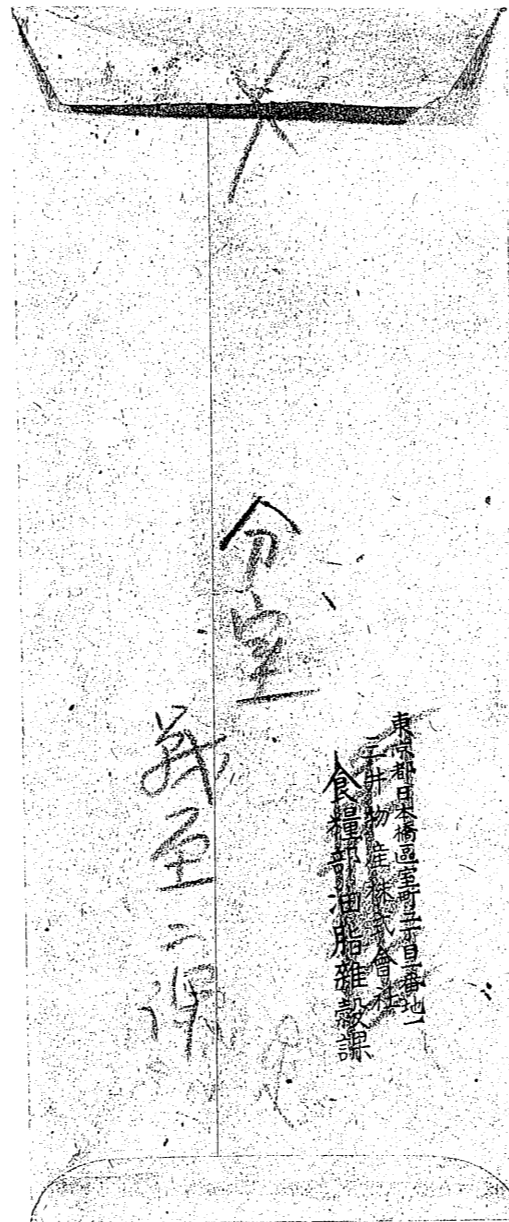 東京都日本橋區室町二丁目一番地一
三井物産株式會社
食糧部油脂雜穀課
分室
二課